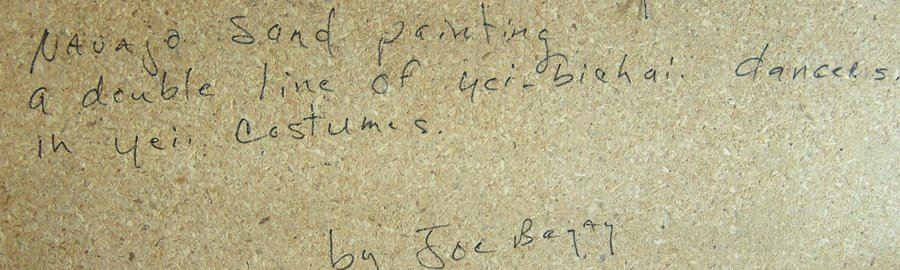 Navajo Sand painting
a double line of yei-Bichai. dancers.
in yeii costumes.
by Joe